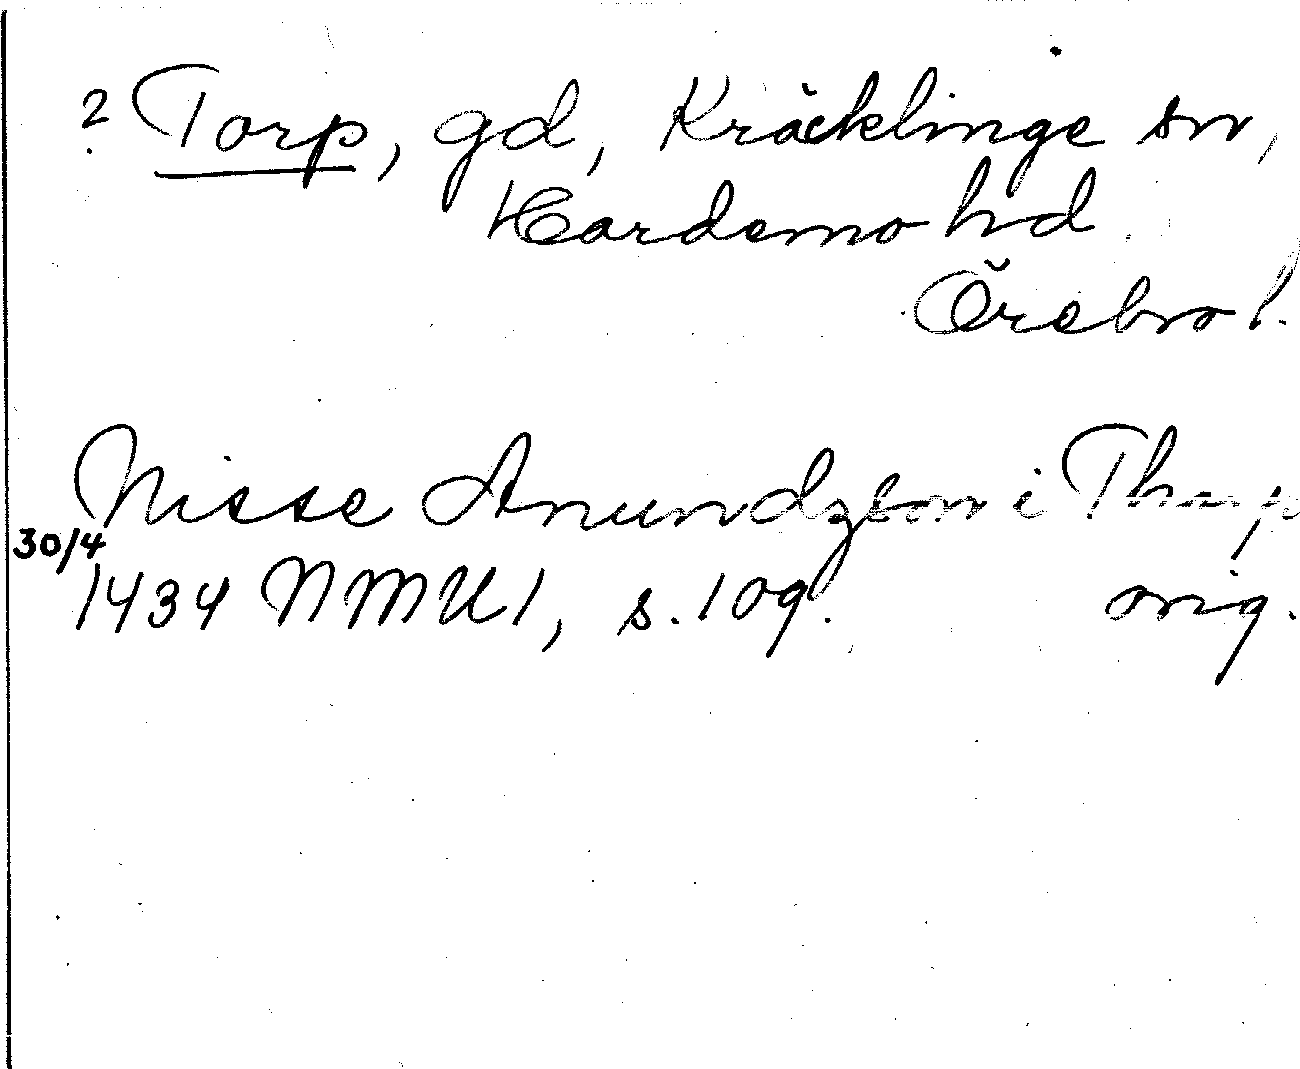 ? Torp, gd, Kräcklinge sn,
Hardemo hd
Örebro l.
Nisse Anundzson i Thorp
30/4
1434 NMU 1, s. 109. orig.